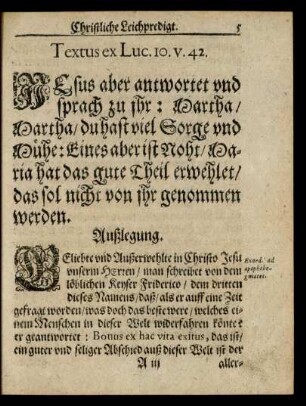 Christliche Leichpredigt. 5
Textus ex Luc. 10. v. 42.
JEsus aber antwortet vnd
sprach zu jhr: Martha/
Martha/ du hast viel Sorge vnd
Mühe: Eines aber ist Noht/ Ma-
ria hat das gute Theil erwehlet/
das sol nicht von jhr genommen
werden.
Außlegung.
GEliebte vnd Außerwehlte in Christo Jesu
vnserm HErren/ man schreibet von dem
löblichen Keyser Friderico/ dem dritten
dieses Namens/ daß/ als er auff eine Zeit
gefragt worden/ was doch das beste were/ welches ei-
nem Menschen in dieser Welt widerfahren könte?
er geantwortet: Bonus ex hac vita exitus, das ist/
ein guter vnd seliger Abschied auß dieser Welt ist der
A iij aller-